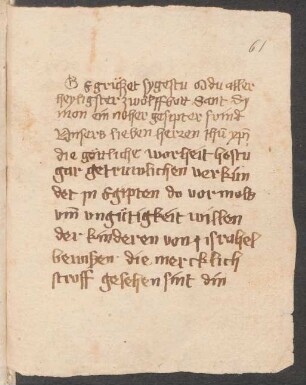 61
Gegrüßet sygestu O du aller
heyligster zwölffbott Sant Sy
mon ein noher gesipter frind
Unsers lieben herren ihu xpi
die götliche warheit hostu
gar getruwlichen verkün
det in Egipten do vor mols
vm ungütigkeit willen
der kinderen von israhel
bewißen die mercklich
stroff gesehen sint din